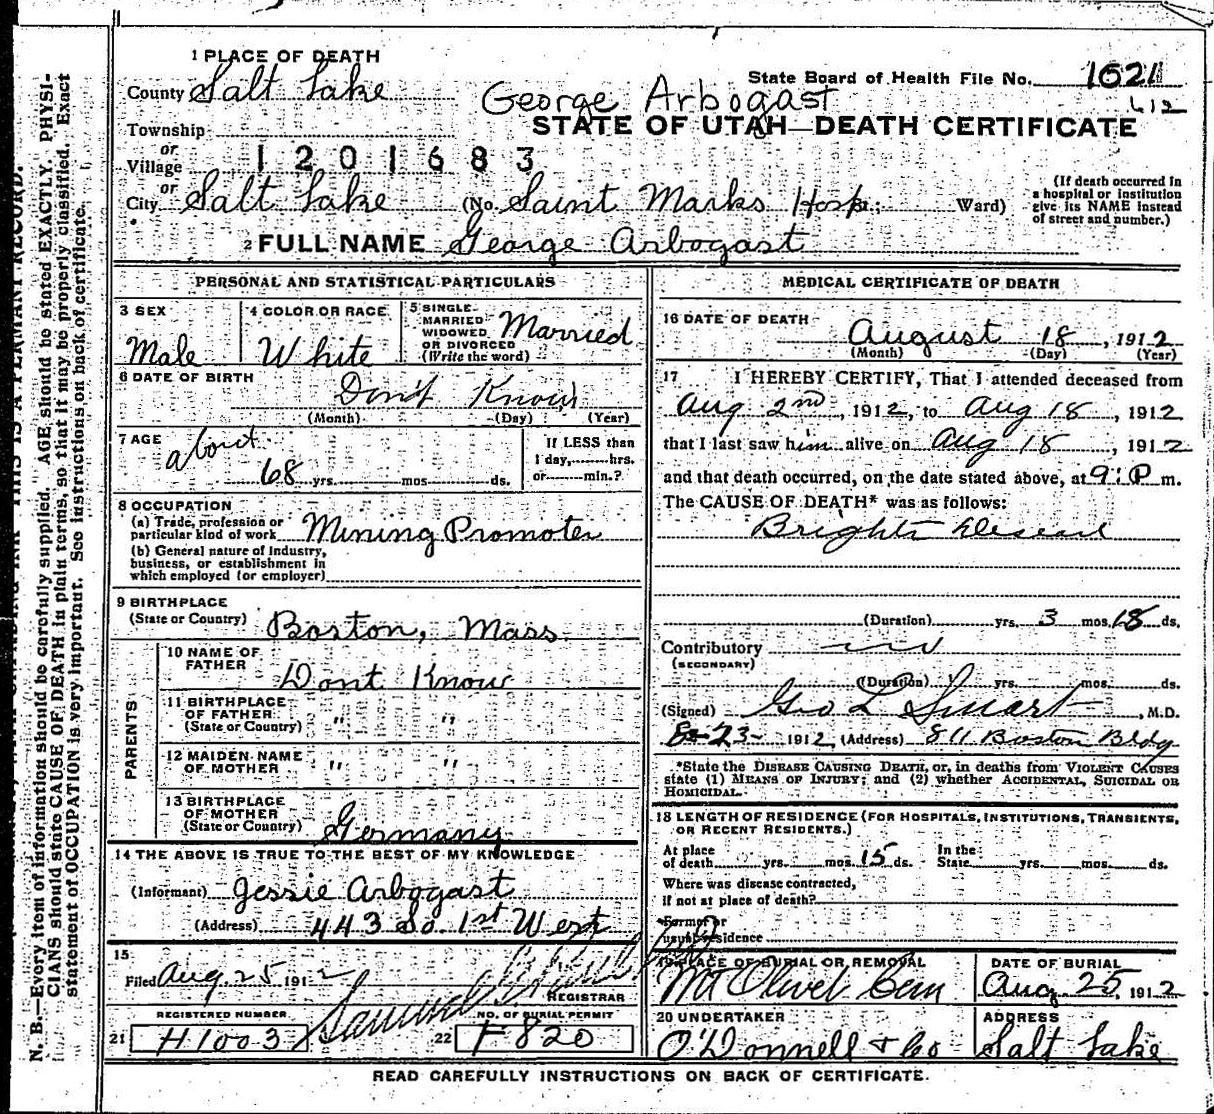 1 PLACE OF DEATH
County Salt Lake
State Board of Health File No. 1621
George Arbogast
612
STATE OF UTAH—DEATH CERTIFICATE
Township
or
Village
1201683
or
City Salt Lake (No. Saint Marks Hosp.; Ward)
(If death occurred in
a hospital or institution
give its NAME instead
of street and number.)
2 FULL NAME George Arbogast
PERSONAL AND STATISTICAL PARTICULARS
3 SEX
Male
4 COLOR OR RACE
White
5 SINGLE
MARRIED
WIDOWED
OR DIVORCED
(Write the word)
Married
6 DATE OF BIRTH
Don't Know
(Month) (Day) (Year)
7 AGE
about
68 yrs. mos. ds.
If LESS than
1 day, hrs.
or min.?
8 OCCUPATION
(a) Trade, profession or
particular kind of work Mining Promoter
(b) General nature of industry,
business, or establishment in
which employed (or employer)
9 BIRTHPLACE
(State or Country) Boston, Mass
PARENTS
10 NAME OF
FATHER Dont Know
11 BIRTHPLACE
OF FATHER
(State or Country) " "
12 MAIDEN NAME
OF MOTHER " "
13 BIRTHPLACE
OF MOTHER
(State or Country) Germany
14 THE ABOVE IS TRUE TO THE BEST OF MY KNOWLEDGE
(Informant) Jessie Arbogast
(Address) 443 So. 1st West
15
Filed Aug. 25 1912
Samuel
REGISTRAR
REGISTERED NUMBER
21 H1003
NO. OF BURIAL PERMIT
22 F820
MEDICAL CERTIFICATE OF DEATH
16 DATE OF DEATH
August 18, 1912
(Month) (Day) (Year)
17 I HEREBY CERTIFY, That I attended deceased from
Aug 2nd, 1912, to Aug 18, 1912
that I last saw him alive on Aug 18, 1912
and that death occurred, on the date stated above, at 9: P m.
The CAUSE OF DEATH* was as follows:
Brights Disease
(Duration) yrs. 3 mos. 18 ds.
Contributory
(SECONDARY)
(Duration) yrs. mos. ds.
(Signed) Geo L Smart, M.D.
8-23- 1912, (Address) 811 Boston Bldg
*State the DISEASE CAUSING DEATH, or, in deaths from VIOLENT CAUSES
state (1) MEANS OF INJURY; and (2) whether ACCIDENTAL, SUICIDAL OR
HOMICIDAL.
18 LENGTH OF RESIDENCE (FOR HOSPITALS, INSTITUTIONS, TRANSIENTS,
OR RECENT RESIDENTS.)
At place
of death yrs. mos. 15 ds.
In the
State yrs. mos. ds.
Where was disease contracted,
if not at place of death?
Former or
usual residence
19 PLACE OF BURIAL OR REMOVAL
Mt Olivet Cem
DATE OF BURIAL
Aug. 25, 1912
20 UNDERTAKER
O'Donnell & Co
ADDRESS
Salt Lake
READ CAREFULLY INSTRUCTIONS ON BACK OF CERTIFICATE.
THIS IS A PERMANENT RECORD.
N. B.—Every item of information should be carefully supplied. AGE should be stated EXACTLY. PHYSI-
CIANS should state CAUSE OF DEATH in plain terms, so that it may be properly classified. Exact
statement of OCCUPATION is very important. See instructions on back of certificate.